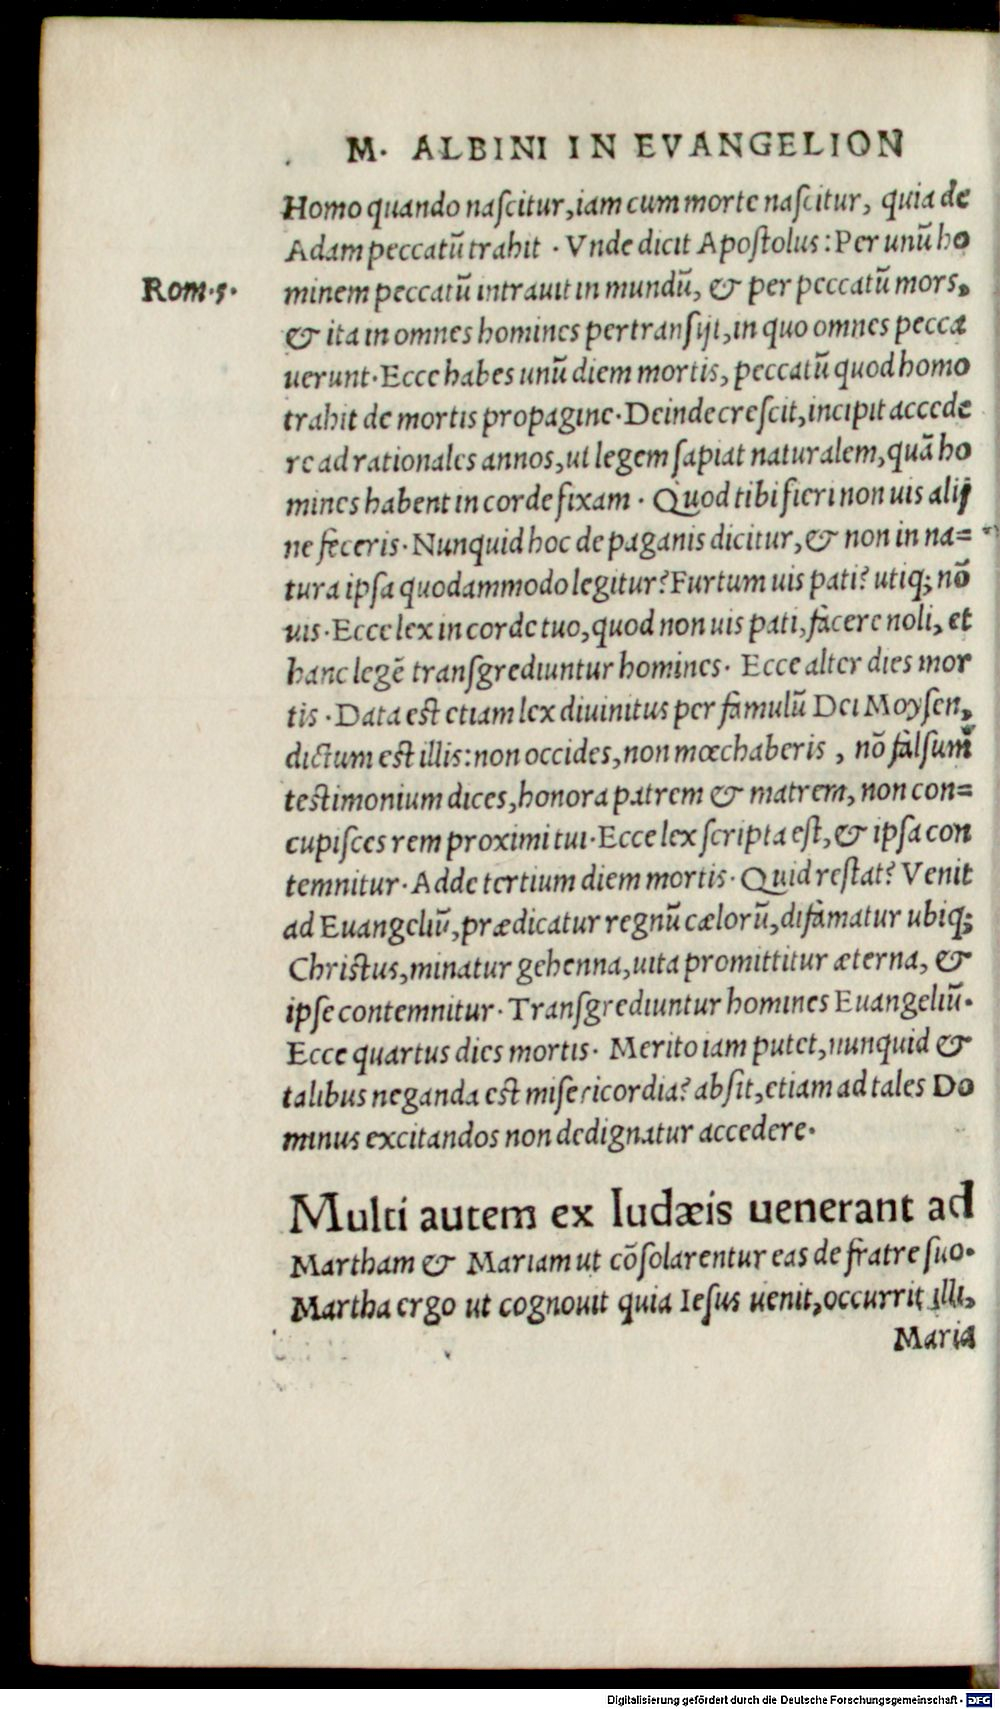 M. ALBINI IN EVANGELION
Homo quando naſcitur, iam cum morte naſcitur, quia de
Adam peccatũ trahit . Vnde dicit Apoſtolus: Per unũ ho
Rom.5.
minem peccatũ intrauit in mundũ, & per peccatũ mors,
& ita in omnes homines pertranſijt, in quo omnes pecca
uerunt. Ecce habes unũ diem mortis, peccatũ quod homo
trahit de mortis propagine. Deinde creſcit, incipit accede
re ad rationales annos, ut legem ſapiat naturalem, quã ho
mines habent in corde fixam . Quod tibi fieri non uis alij
ne feceris. Nunquid hoc de paganis dicitur, & non in na=
tura ipſa quodammodo legitur? Furtum uis pati? utiq; nõ
uis. Ecce lex in corde tuo, quod non uis pati, facere noli, et
hanc legẽ tranſgrediuntur homines. Ecce alter dies mor
tis . Data eſt etiam lex diuinitus per famulũ Dei Moyſen,
dictum eſt illis: non occides, non mœchaberis , nõ falſum
teſtimonium dices, honora patrem & matrem, non con=
cupiſces rem proximi tui. Ecce lex ſcripta eſt, & ipſa con
temnitur. Adde tertium diem mortis. Quid reſtat? Venit
ad Euangeliũ, prædicatur regnũ cælorũ, difamatur ubiq;
Chriſtus, minatur gehenna, uita promittitur æterna, &
ipſe contemnitur. Tranſgrediuntur homines Euangeliũ.
Ecce quartus dies mortis. Merito iam putet, nunquid &
talibus neganda eſt miſericordia? abſit, etiam ad tales Do
minus excitandos non dedignatur accedere.
Multi autem ex Iudæis uenerant ad
Martham & Mariam ut cõſolarentur eas de fratre ſuo.
Martha ergo ut cognouit quia Ieſus uenit, occurrit illi,
Maria
Digitalisierung gefördert durch die Deutsche Forschungsgemeinschaft - DFG